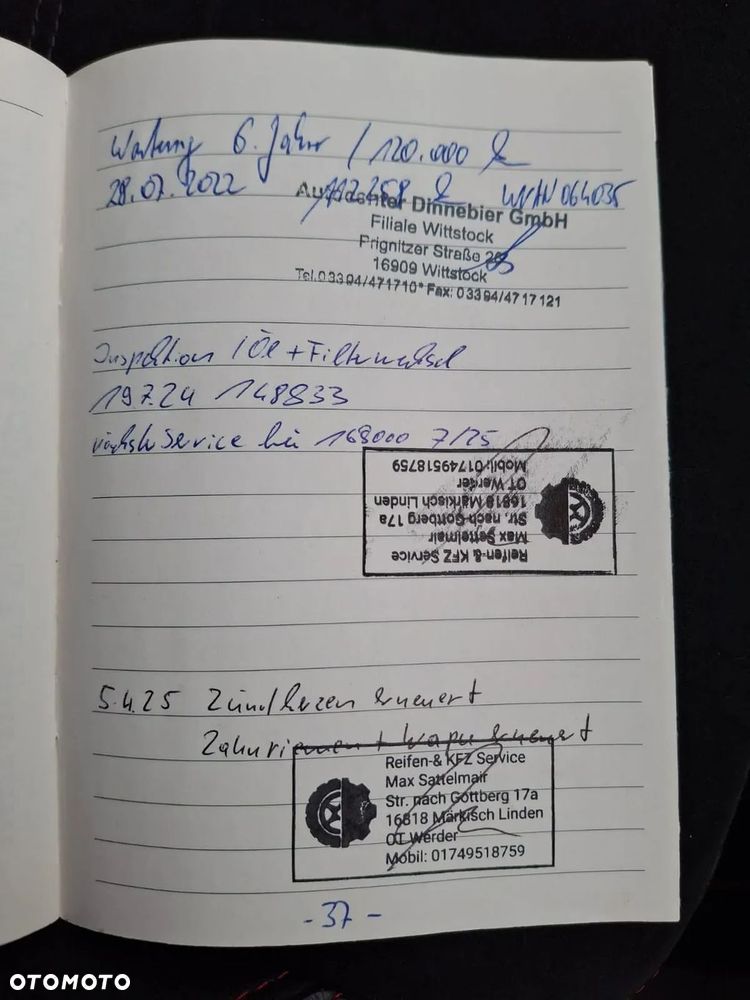 Wartung 6. Jahr / 120.000 km
28.07.2022 117258 km WVAN064035
Autocenter Dinnebier GmbH
Filiale Wittstock
Prignitzer Straße
16909 Wittstock
Tel.03394/471710* Fax: 03394/4717121
Inspektion / Öl + Filterwechsel
19.7.24 148833
nächste Service bei 168000 7/25
Reifen-& KFZ Service
Max Sattelmair
Str. nach Gottberg 17a
16818 Märkisch Linden
OT Werder
Mobil: 01749518759
5.4.25 Zündkerzen erneuert
Zahnriemen + Wapu erneuert
Reifen-& KFZ Service
Max Sattelmair
Str. nach Gottberg 17a
16818 Märkisch Linden
OT Werder
Mobil: 01749518759
- 37 -
OTOMOTO